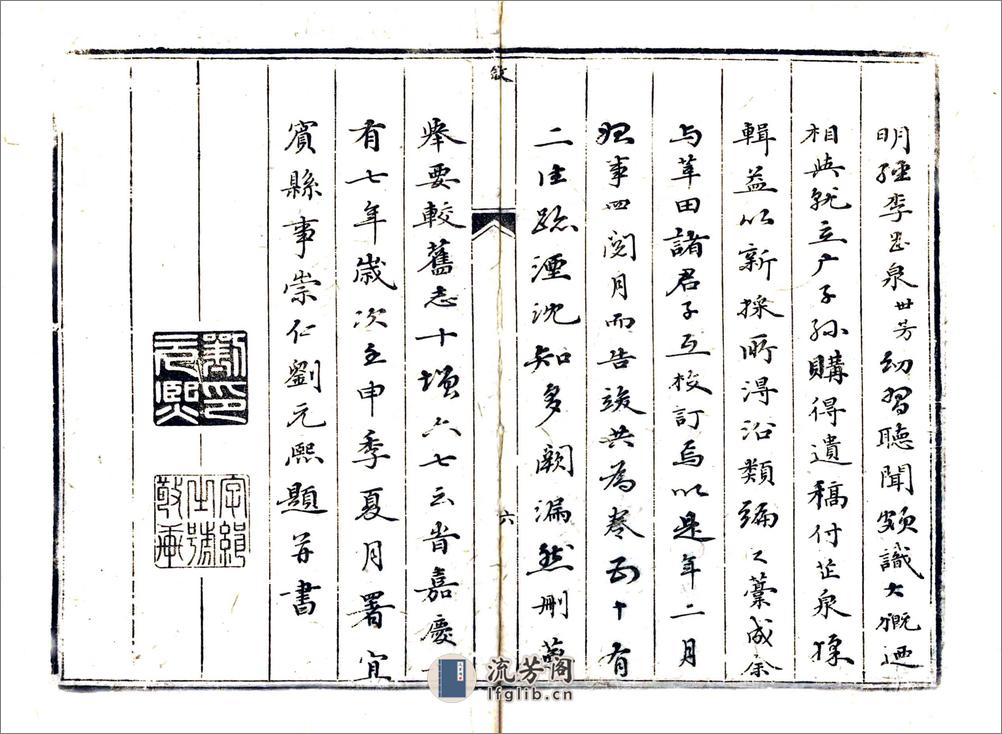 明經李芷泉世芳幼習聽聞頗識大概迺
相與就立广子孫購得遺稿付芷泉採
輯益以新採所得沿類編之藁成余
与莘田諸君子互校訂焉以是年二月
事四閱月而告竣共為卷五十有
二往蹟湮沈知多闕漏然刪
舉要較舊志十增六七云旹嘉慶
有七年歲次壬申季夏月署宜
賓縣事崇仁劉元熙題并書
敘
六
劉元熙印
流芳阁
lfglib.cn